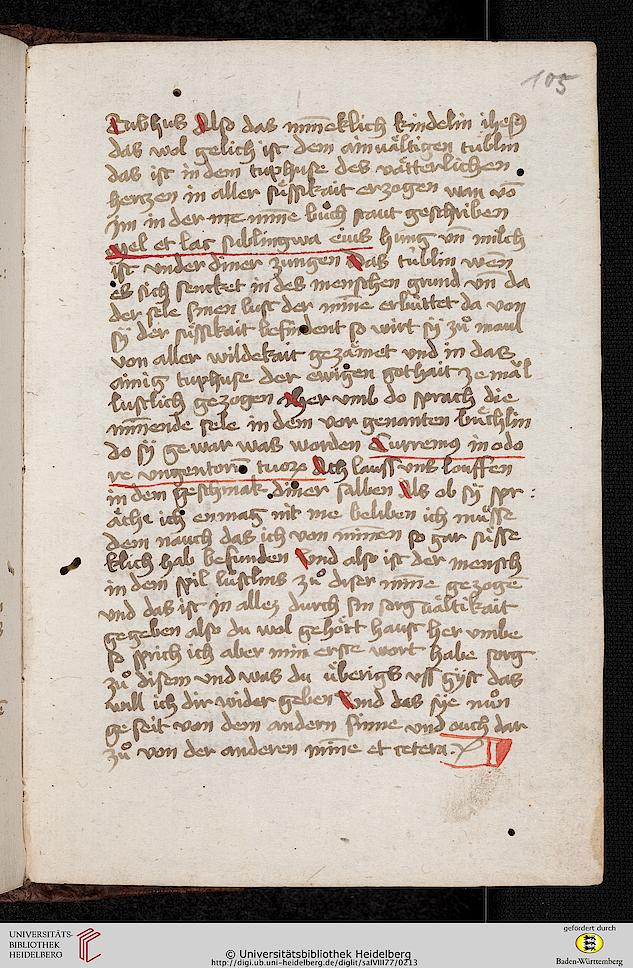 105
Tubhus Also das minēklich kindelin ihesꝰ
das wol gelich ist dem ainuältigen tublin
das ist in dem tuphuse des vätterlichen
hertzen in aller süssikait erzogen wan vō
jm in der me mine buͦch staut geschriben
Mel et lac sublingwa eius hung vn̄ milch
ist vnder diner zungen Das tüblin wen̄
es sich sencket in des menschen grund vn̄ da
der sele sinen lust der mīne erbüttet da von
sÿ der süssikait befindent so wirt sÿ zuͦ maul
von aller wildekait gezämet vnd in das
ainig tuphuse der ewigen gothait ze mäl
lustlich gezogen Her vmb do sprach die
minnende sele in dem vor genanten buͤchlin
do sÿ gewar was worden Curremꝰ in odo
re vngentorū tuorꝫ Ach lauff vns louffen
in dem geschmak diner salben Als ob sÿ spr :
äche ich enmag nit me beliben ich muͤsse
dem nauch das ich von minnen so gar süsse
klich hab befunden Vnd also ist der mensch
in dem spil lustlins zuͦ diser mine gezogē
vnd das ist in allez durch sin sorguältikait
gegeben also du wol gehört haust her vmbe
so sprich ich aber min erste wort habe sorg
zuͦ disem vnd was du überigs vss gÿst das
will ich dir wider geben Vnd das sÿe nuͦn
ge seit von dem andern sinne vnd ouch dar
zuͦ von der anderen mīne et cetera
UNIVERSITÄTS-
BIBLIOTHEK
HEIDELBERG
© Universitätsbibliothek Heidelberg
http://digi.ub.uni-heidelberg.de/diglit/salVIII77/0213
gefördert durch
Baden-Württemberg